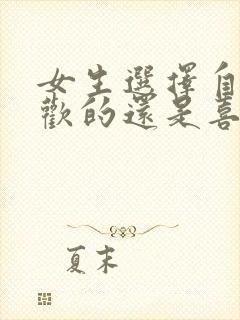 女生選擇自
歡的還是喜
夏末